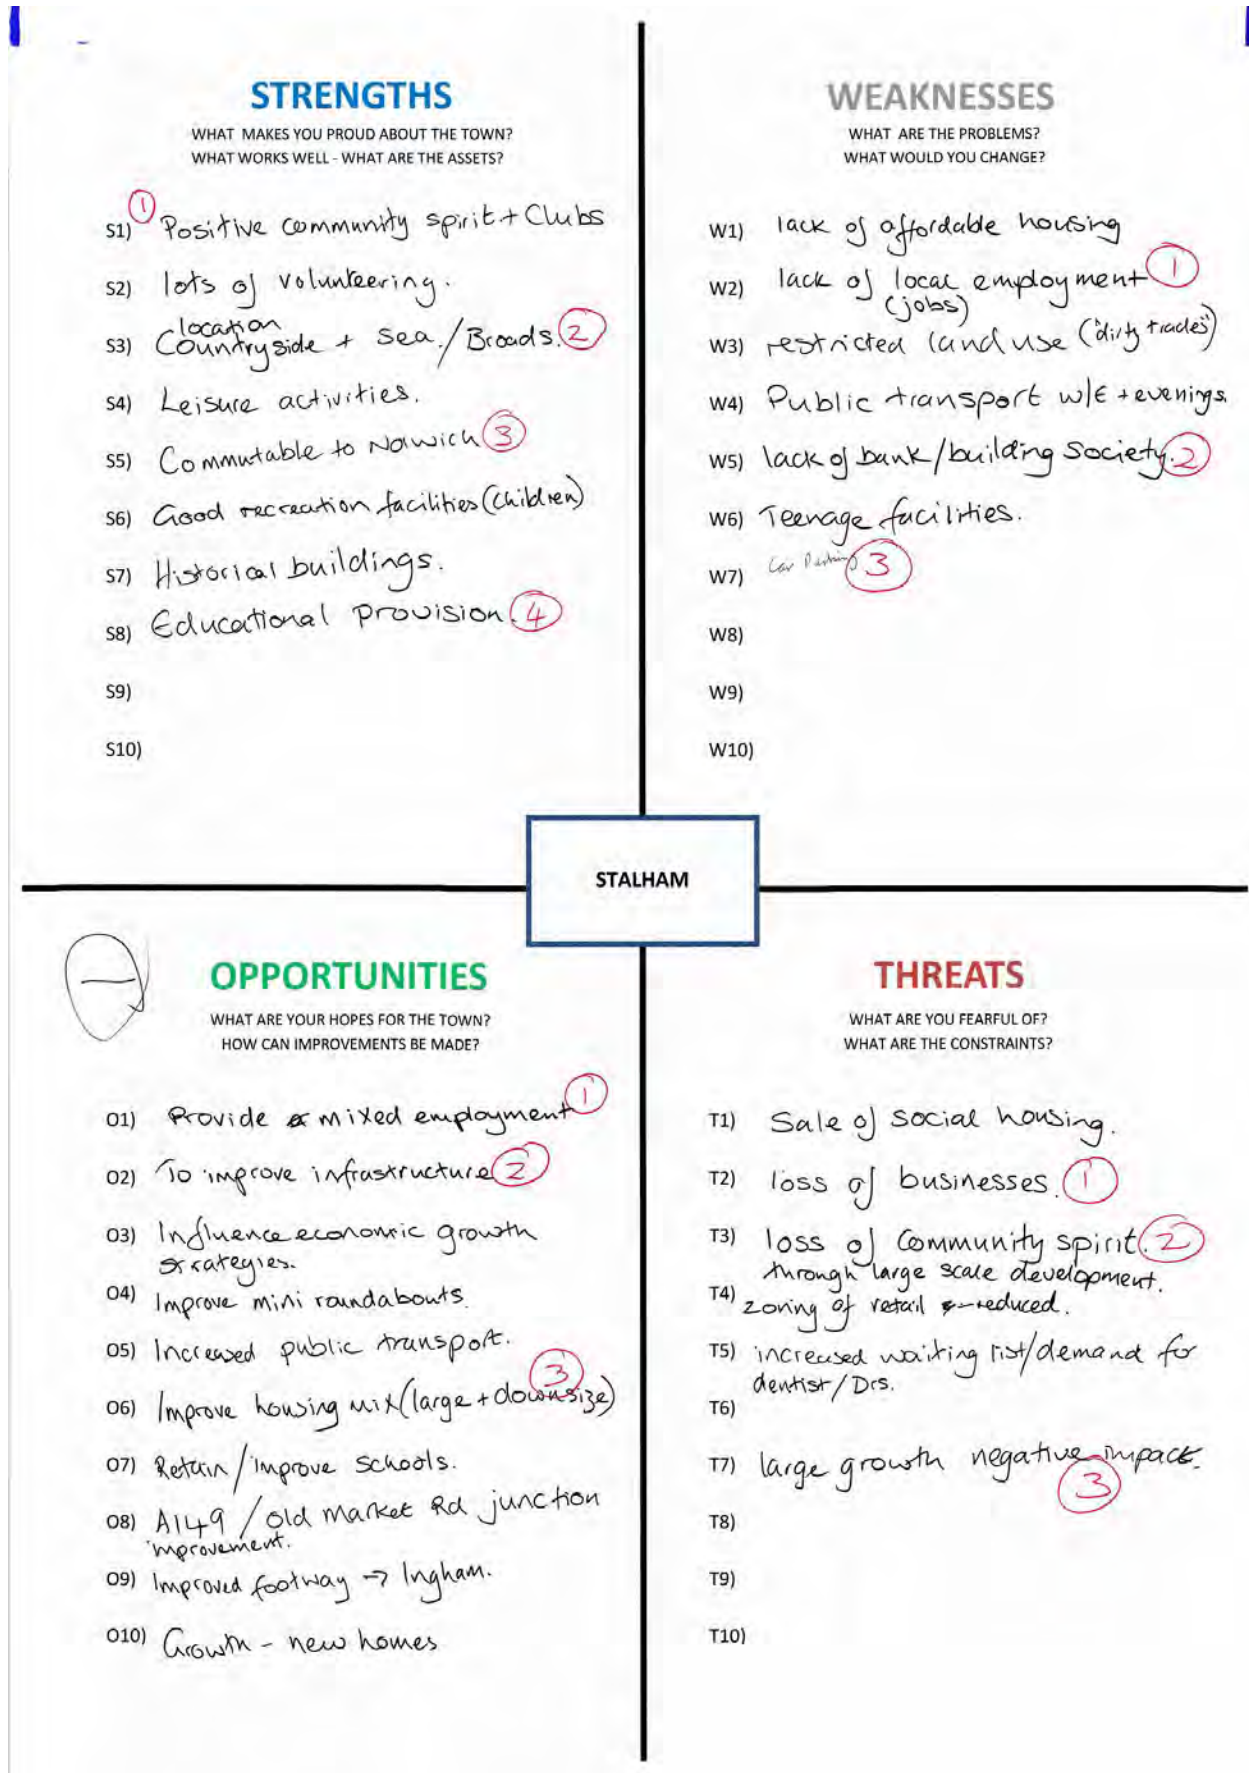 STRENGTHS
WHAT MAKES YOU PROUD ABOUT THE TOWN?
WHAT WORKS WELL - WHAT ARE THE ASSETS?
S1) 1 Positive community spirit + Clubs
S2) lots of volunteering.
location
S3) Countryside + Sea./Broads. 2
S4) Leisure activities.
S5) Commutable to Norwich 3
S6) Good recreation facilities (children)
S7) Historical buildings.
S8) Educational provision. 4
S9)
S10)
WEAKNESSES
WHAT ARE THE PROBLEMS?
WHAT WOULD YOU CHANGE?
W1) lack of affordable housing
W2) lack of local employment 1
(jobs)
W3) restricted land use ("dirty trades")
W4) Public transport w/E + evenings.
W5) lack of bank/building Society. 2
W6) Teenage facilities.
W7) Car Parking 3
W8)
W9)
W10)
STALHAM
OPPORTUNITIES
WHAT ARE YOUR HOPES FOR THE TOWN?
HOW CAN IMPROVEMENTS BE MADE?
O1) Provide mixed employment 1
O2) To improve infrastructure 2
O3) Influence economic growth
strategies.
O4) Improve mini roundabouts.
O5) Increased public transport.
3
O6) Improve housing mix (large + downsize)
O7) Retain/improve schools.
O8) A149 / Old Market Rd junction
improvement.
O9) Improved footway → Ingham.
O10) Growth - new homes
THREATS
WHAT ARE YOU FEARFUL OF?
WHAT ARE THE CONSTRAINTS?
T1) Sale of social housing.
T2) loss of businesses. 1
T3) loss of Community spirit. 2
through large scale development.
T4) zoning of retail reduced.
T5) increased waiting list/demand for
dentist/Drs.
T6)
T7) large growth negative impact.
3
T8)
T9)
T10)